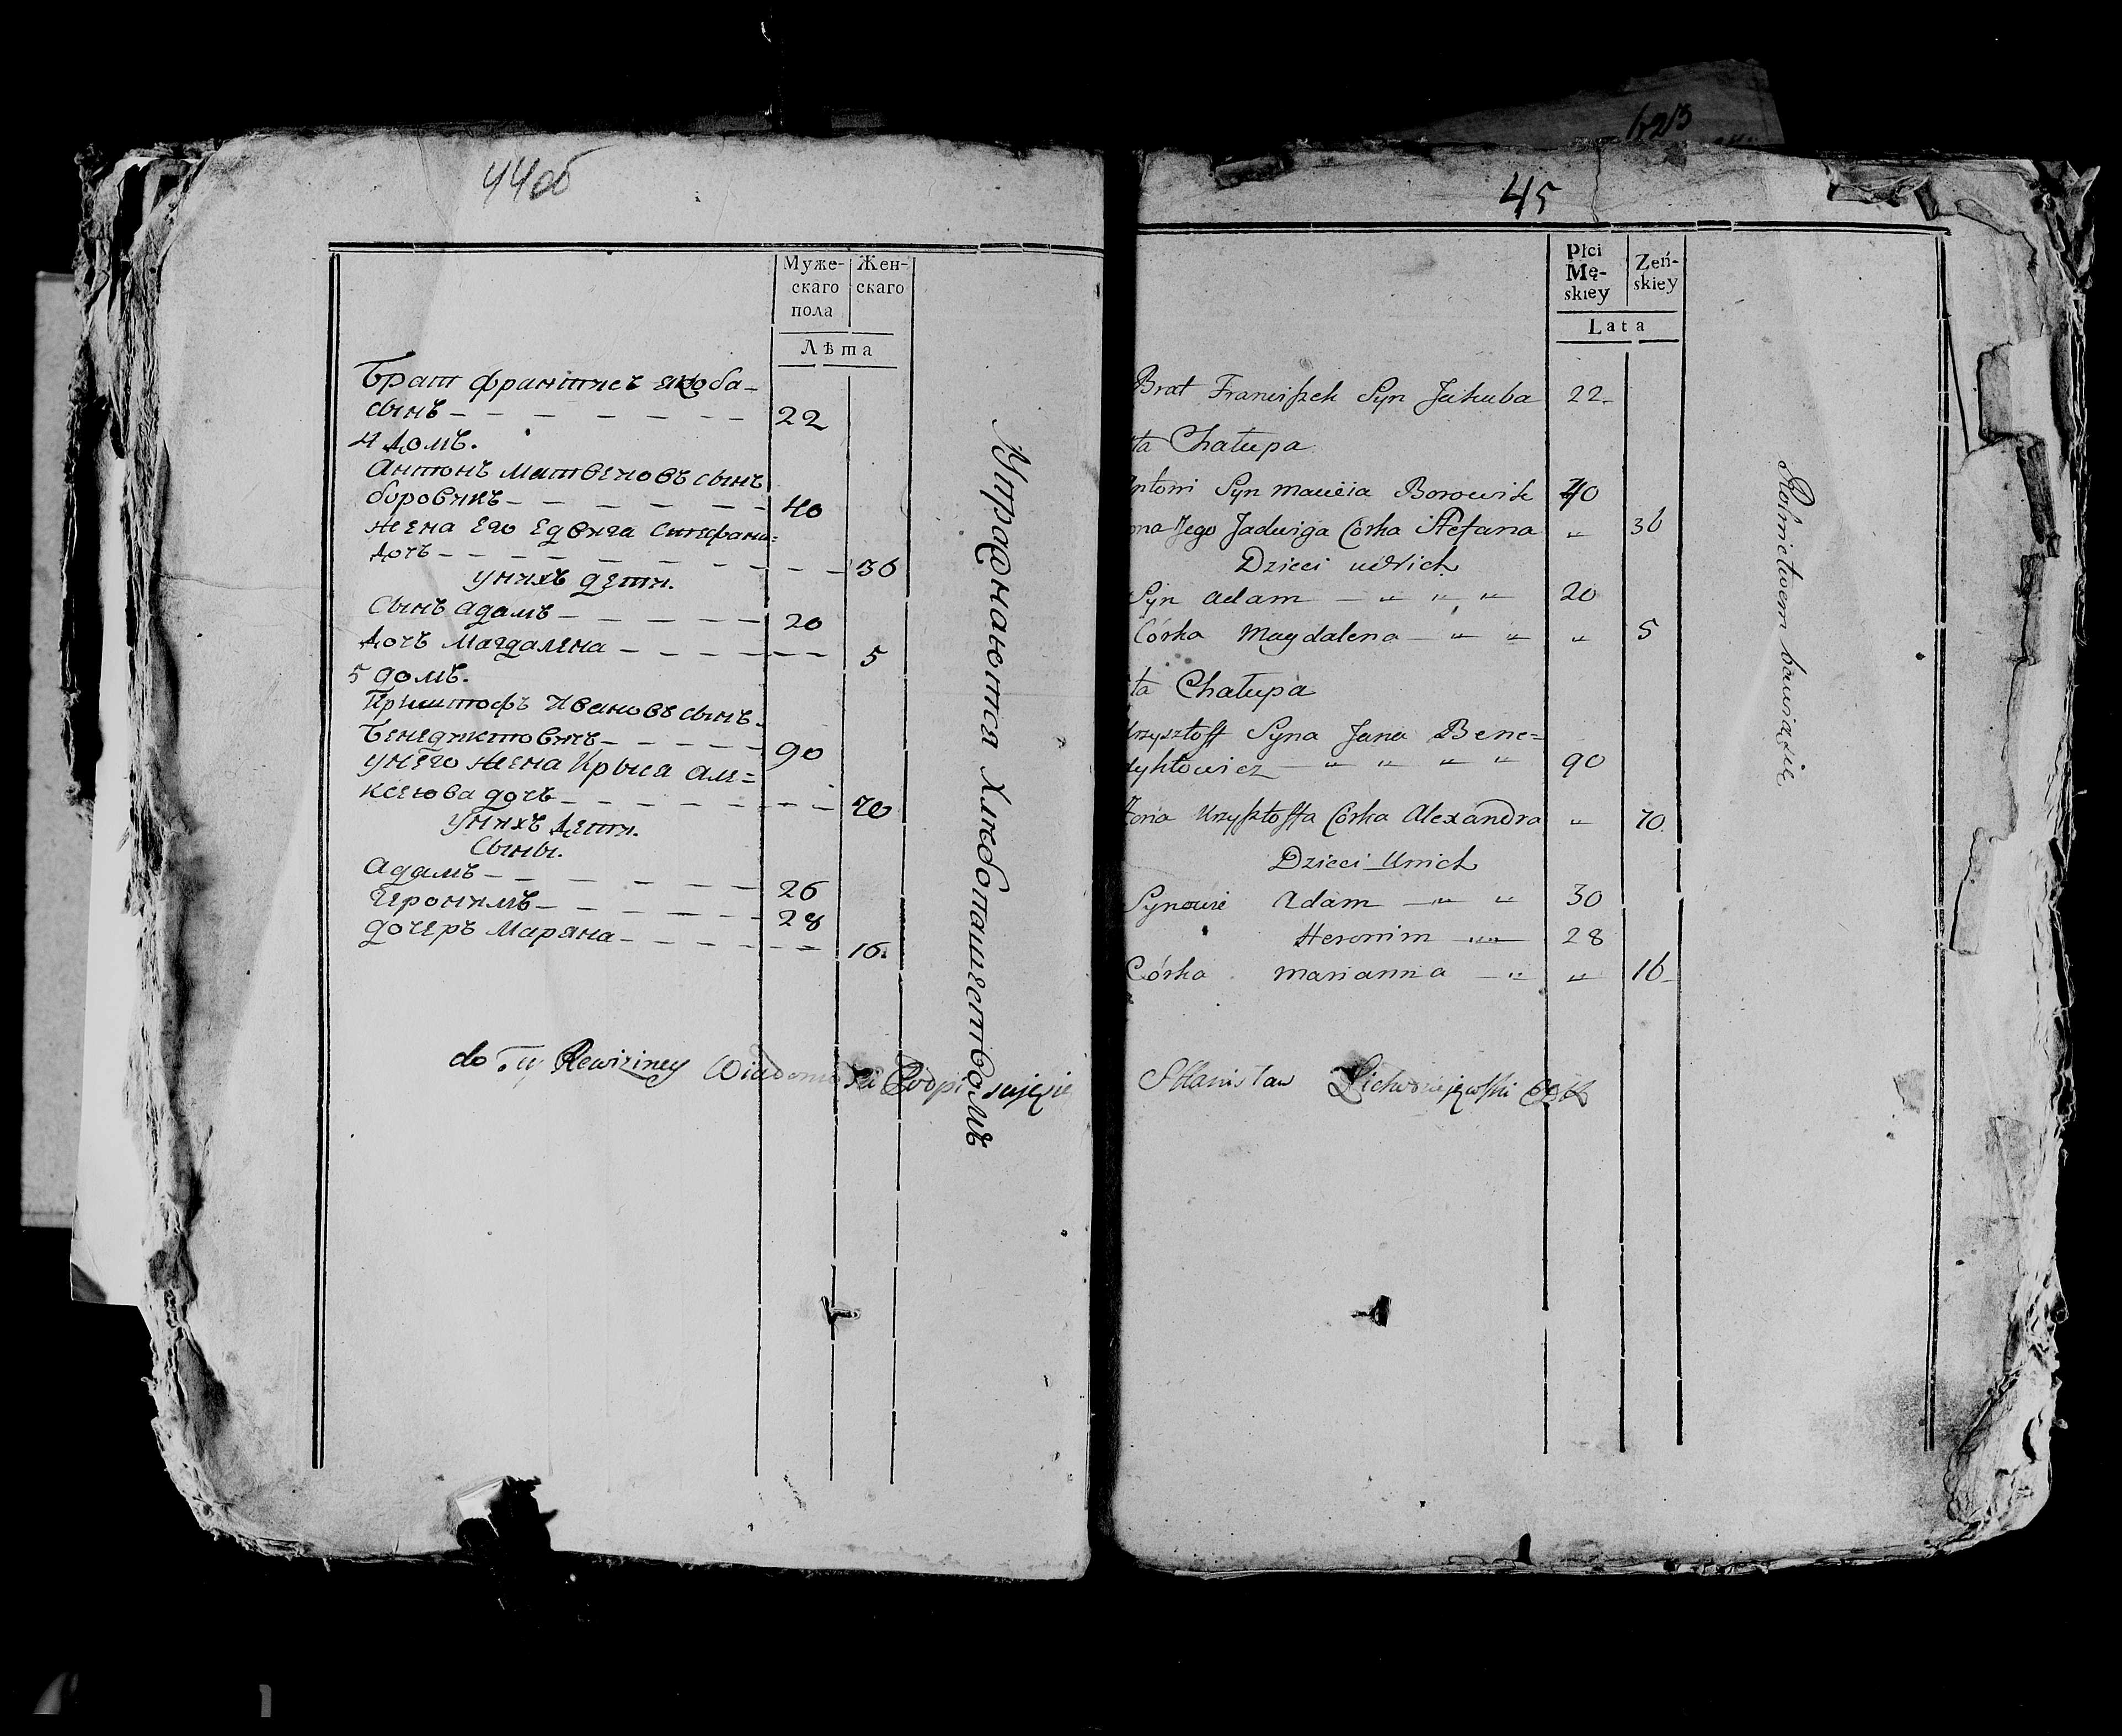 44об
Муже-
скаго
пола
Жен-
скаго
Лѣта
Братъ францтиекъ якоба
сынъ — — — — — — — 22
4 домъ.
Антонъ Матвеиовъ сынъ
боровикъ — — — — — — 40
жена Его Едвига Стефана=
дочь — — — — — — — — 36
у нихъ дети.
Сынъ адамъ — — — — — 20
дочь Магдалена — — — — — — 5
5 домъ.
Криштофъ Ивановъ сынъ
Бенедиктовичъ — — — — — 90
у него жена Крыса але=
ксеюва дочь — — — — — — — 70
у нихъ дети.
Сыны.
адамъ — — — — — — 26
Иеронимъ — — — — — — 28
дочеръ Марянa — — — — — — 16.
Упражнаются хлебопашеством
do Ty Rewiziney Wiadomości Podpisuję się
623
45
Płci
Mę-
skiey
Zeń-
skiey
Lata
Brat Franciszek Syn Jakuba 22
ta Chałupa
Antoni Syn Macieia Borowik 40
ona Jego Jadwiga Córka Stefana „ 36
Dzieci u Nich
Syn Adam — „ „ „ 20
Córka Magdalena — „ „ „ 5
ta Chałupa
Krzysztoff Syna Jana Bene=
dyktowicz — „ „ „ „ 90
Żona Krzysztoffa Córka Alexandra „ 70.
Dzieci Unich
Synowie Adam — „ „ 30
Heronim — „ 28
Córka Marianna — „ „ 16
Rolnictwem bawią się
Stanisław